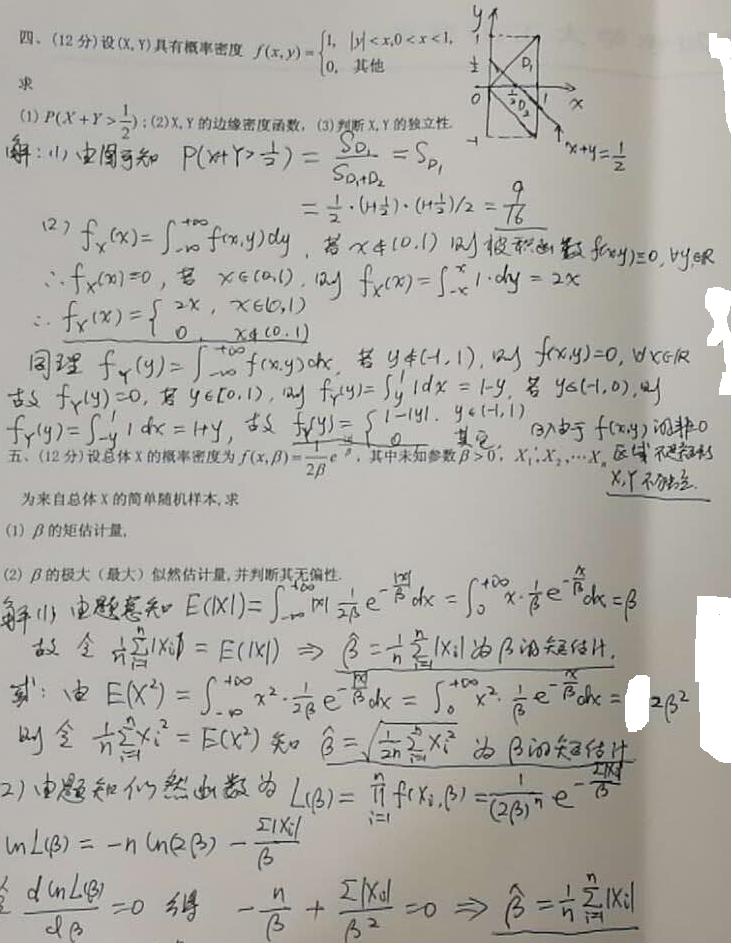 四、(12分)设(X,Y)具有概率密度 f(x,y)={1, |y|<x,0<x<1, 0, 其他
求
(1) P(X+Y>1/2);(2)X,Y的边缘密度函数, (3)判断X,Y的独立性.
y 1 1/2 0 -1 D₁ 1/2 D₂ 1 x x+y=1/2
解:(1) 由图可知 P(X+Y>1/2) = S_{D₁}/S_{D₁+D₂} = S_{D₁}
= 1/2·(1+1/2)·(1+1/2)/2 = 9/16
(2) f_X(x)=∫_{-∞}^{+∞} f(x,y)dy, 若 x∉(0,1) 则被积函数 f(x,y)≡0, ∀y∈R
∴ f_X(x)=0, 若 x∈(0,1), 则 f_X(x)=∫_{-x}^{x} 1·dy = 2x
∴ f_X(x)={2x, x∈(0,1) 0, x∉(0,1)
同理 f_Y(y)=∫_{-∞}^{+∞} f(x,y)dx, 若 y∉(-1,1), 则 f(x,y)=0, ∀x∈R
故 f_Y(y)=0, 若 y∈[0,1), 则 f_Y(y)=∫_y^1 1dx = 1-y, 若 y∈(-1,0), 则
f_Y(y)=∫_{-y}^1 1dx = 1+y, 故 f_Y(y)={1-|y|, y∈(-1,1) 0 其它 (3)由于 f(x,y)的非0
区域不是矩形
X,Y不独立.
五、(12分)设总体X的概率密度为 f(x,β)=1/(2β) e^{-|x|/β}, 其中未知参数β>0, X₁,X₂,…Xₙ
为来自总体X的简单随机样本,求
(1) β的矩估计量,
(2) β的极大(最大)似然估计量,并判断其无偏性.
解(1) 由题意知 E(|X|)=∫_{-∞}^{+∞} |x| 1/(2β) e^{-|x|/β}dx = ∫_0^{+∞} x·1/β e^{-x/β}dx=β
故令 1/n Σ_{i=1}^n |Xi| = E(|X|) ⇒ β̂ = 1/n Σ_{i=1}^n |Xi| 为β的矩估计.
或:由 E(X²) = ∫_{-∞}^{+∞} x²·1/(2β) e^{-|x|/β}dx = ∫_0^{+∞} x²·1/β e^{-x/β}dx = 2β²
则令 1/n Σ_{i=1}^n Xi² = E(X²) 知 β̂ = √(1/(2n) Σ_{i=1}^n Xi²) 为β的矩估计
2) 由题知似然函数为 L(β) = Π_{i=1}^n f(Xi,β) = 1/(2β)ⁿ e^{-Σ|Xi|/β}
lnL(β) = -n ln(2β) - Σ|Xi|/β
令 dlnL(β)/dβ =0 得 -n/β + Σ|Xi|/β² =0 ⇒ β̂ = 1/n Σ_{i=1}^n |Xi|